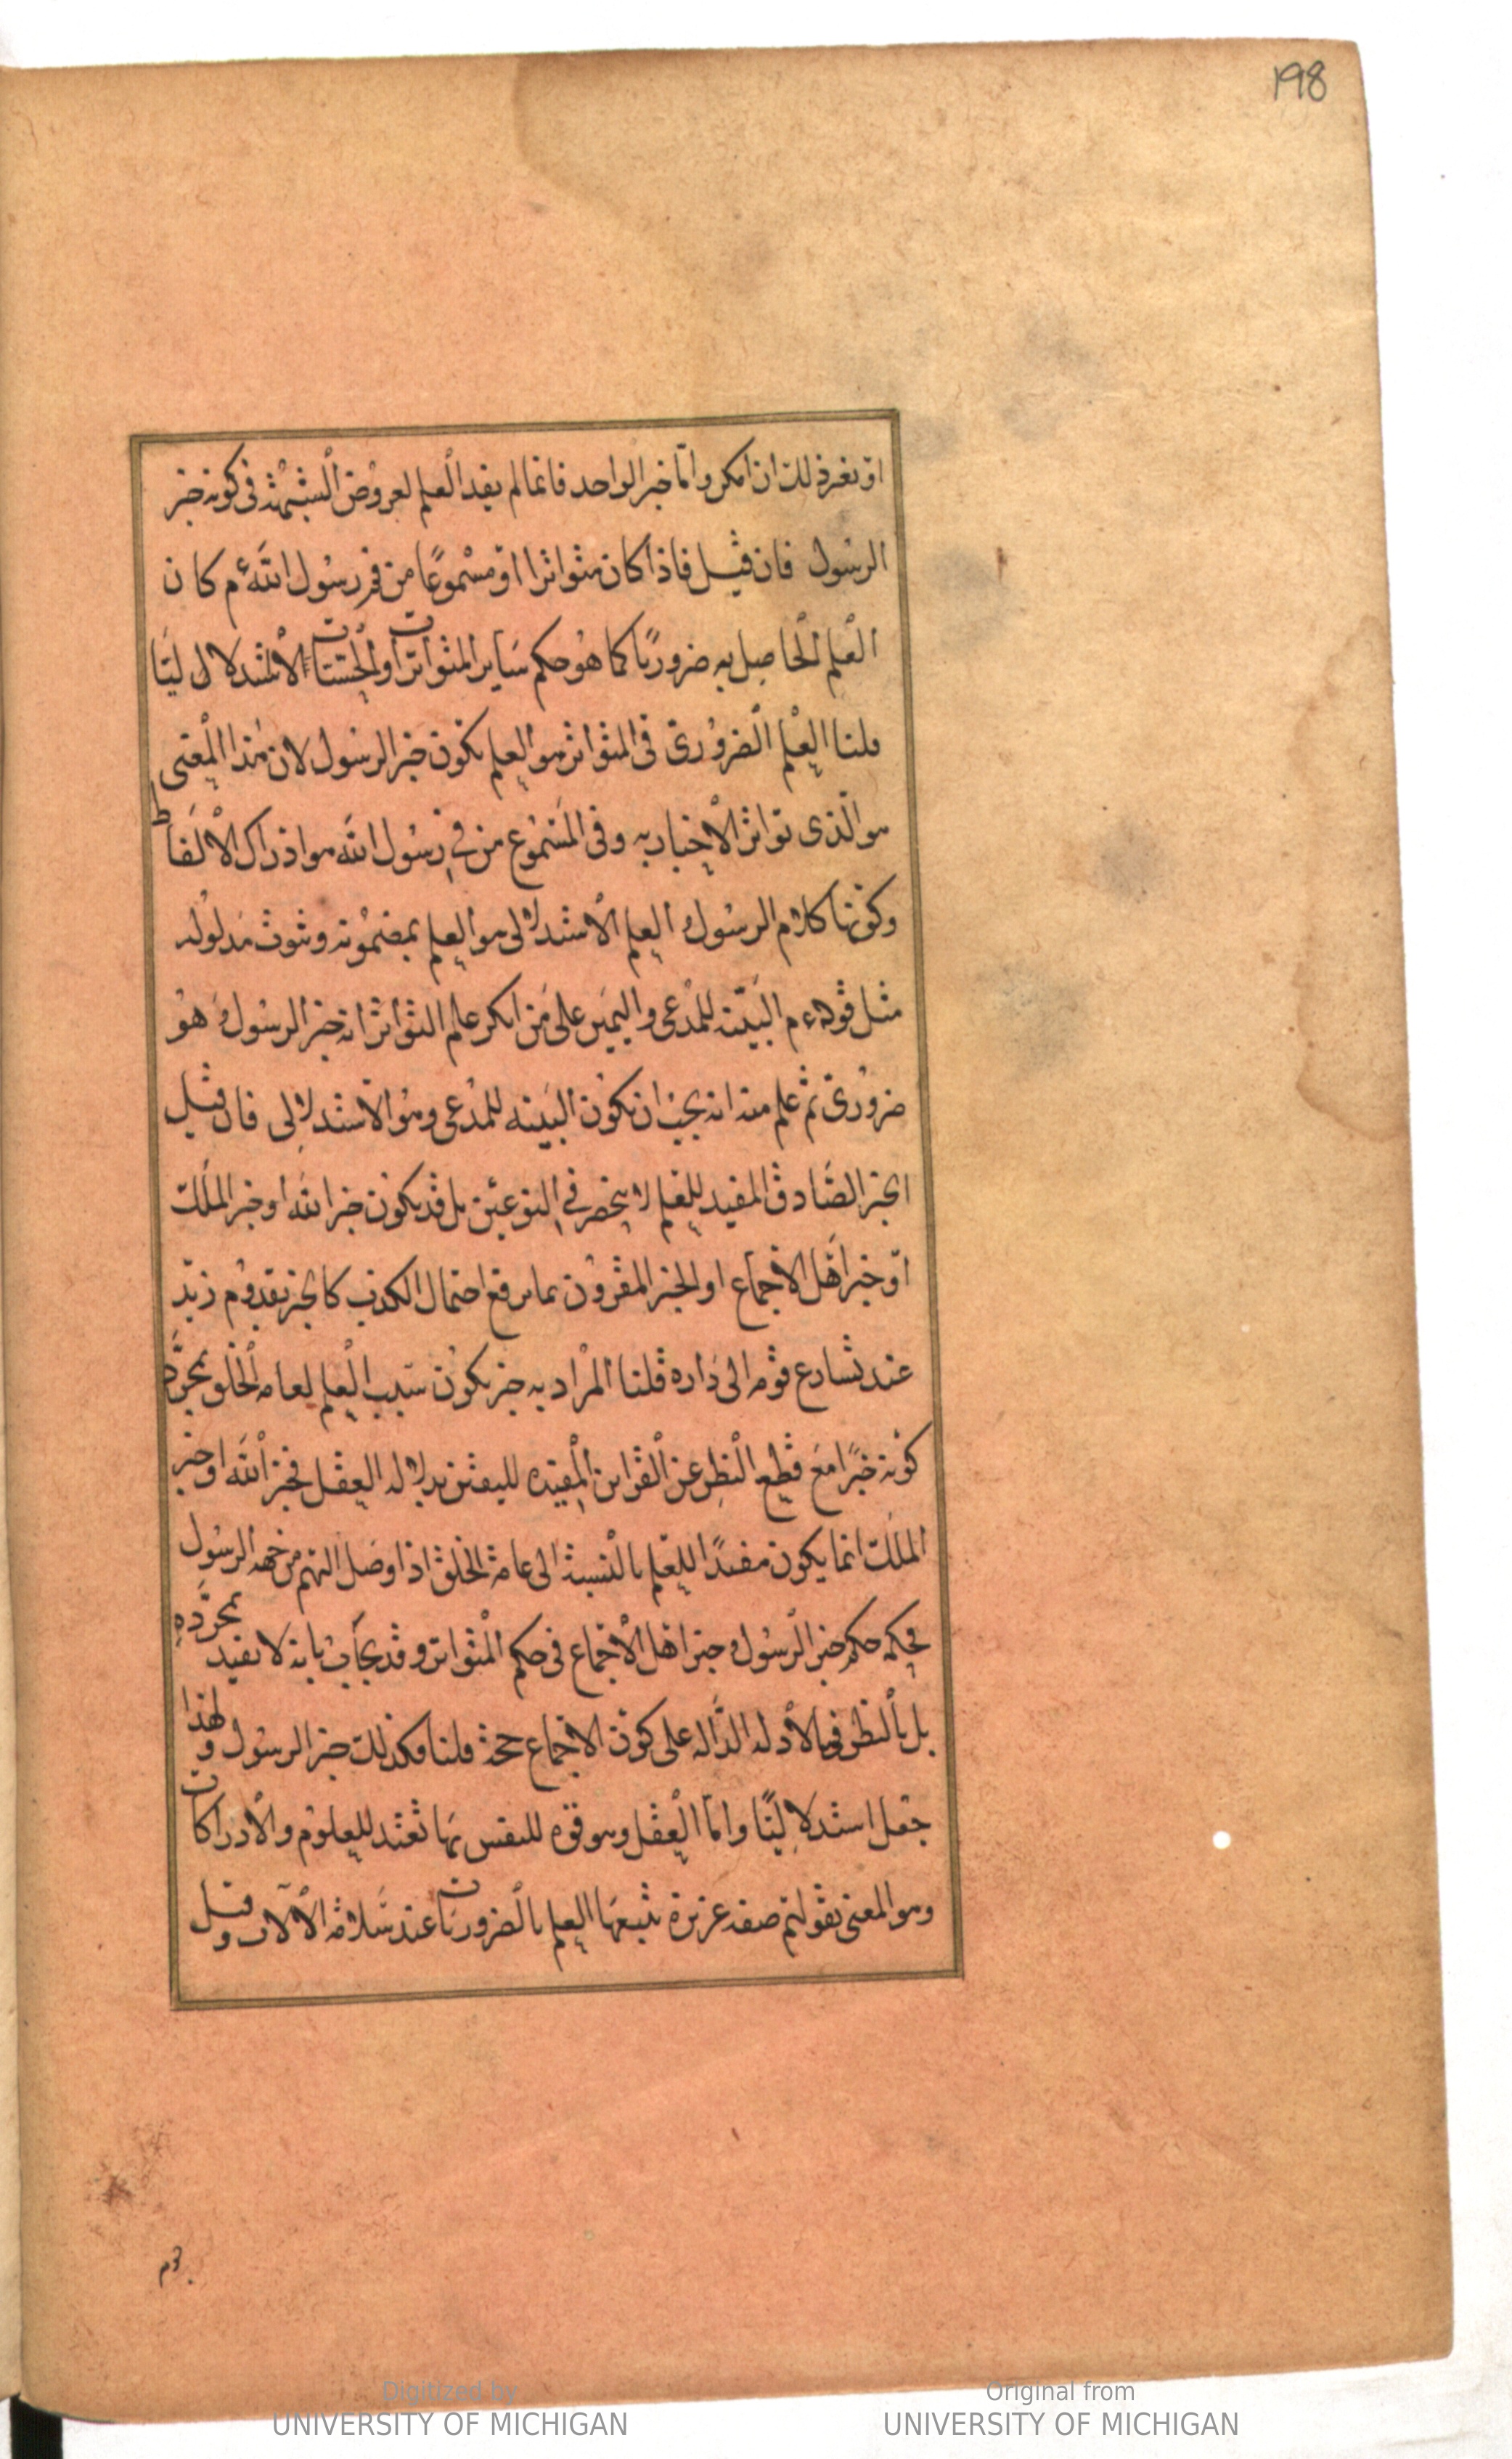 198
او بغير ذلك ان امكن واما خبر الواحد فانما لم يفد العلم لعروض الشبهة فى كونه خبر
الرسول فان قيل فاذا كان متواترا او مسموعا من فى رسول الله ءم كان
العلم الحاصل به ضروريا كما هو حكم ساير المتواترات والحسيات لا استدلاليا
قلنا العلم الضرورى فى المتواتر هو العلم بكون خبر الرسول لان هذا المعنى
هو الذى تواتر الاخبار به وفى المسموع من فى رسول الله هو ادراك الالفاظ
وكونها كلام الرسول و العلم الاستدلالى هو العلم بمضمونه وثبوت مدلوله
مثل قوله ءم البينة للمدعى واليمين على من انكر علم التواتر انه خبر الرسول و هو
ضرورى ثم علم منه انه يجب ان يكون البينه للمدعى وهو الاستدلالى فان قيل
الخبر الصادق المفيد للعلم لا ينحصر فى النوعين بل قد يكون خبر الله او خبر الملك
او خبر اهل الاجماع او الخبر المقرون بما يرفع احتمال الكذب كالخبر بقدوم زيد
عند تسارع قومه الى داره قلنا المراد به خبر يكون سبب العلم لعامه الخلق بمجرد
كونه خبرا مع قطع النظر عن القراين المفيده لليقين بدلاله العقل فخبر الله او خبر
الملك انما يكون مفيدا للعلم بالنسبة الى عامة الخلق اذا وصل اليهم من جهه الرسول
فحكمه حكم خبر الرسول و خبر اهل الاجماع فى حكم المتواتر وقد يجاب بانه لا يفيد بمجرده
بل بالنظر فى الادله الداله على كون الاجماع حجة قلنا فكذلك خبر الرسول ولهذا
جعل استدلاليا واما العقل وهو قوه للنفس بها تعتد للعلوم والادراكات
وهو المعنى بقولهم صفه غريزة يتبعها العلم بالضروريات عند سلامة الالات وقيل
Digitized by
UNIVERSITY OF MICHIGAN
Original from
UNIVERSITY OF MICHIGAN